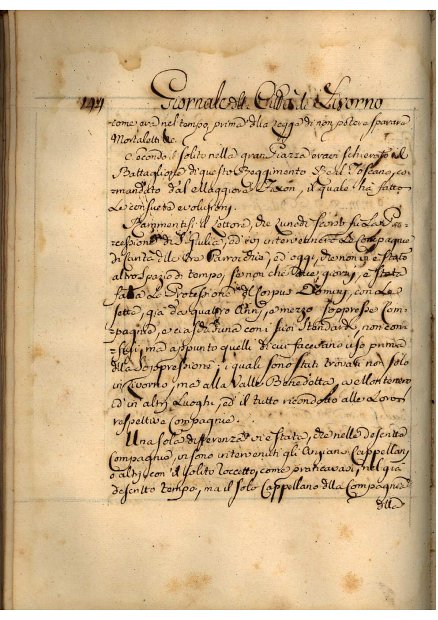 144 Giornale della Città di Livorno
come era nel tempo, prima della Legge di non potere sparare
Mortaletti &c.
Secondo il solito nella gran Piazza eravi schierato il
Battaglione di questo Reggimento Real Toscano, co-
mandato dal Maggiore, il quale ha fatto
Le consuete evoluzioni.
Rammentisi il Lettore, che Lunedì scorso fu La Pro-
cessione di S. Giulia, ed con intervennero Le Compagnie
di Santa e Parrocchie, ed oggi, che non vi è stato
altro Spazio di tempo, se non che due giorni, è stata
fatta La Processione del Corpus Domini, con Le
sette, già da quattro Anni, e mezzo soppresse Com-
pagnie, e ciascheduna con i suoi Stendardi, non com-
, ma appunto quelli di cui facevano uso prima
della Soppressione, i quali sono stati trovati non solo
in Livorno, ma alla Valle Benedetta, a Montenero
ed in altri Luoghi, ed il tutto ricondotto alle Loro
respettive Compagnie.
Una sola differenza vi è stata, che nelle descritte
Compagnie, vi sono intervenuti gli Anziani Cappellani
o altri con il solito Roccetto, come praticavasi nel già
descritto tempo, ma il solo Cappellano della Compagnia
della